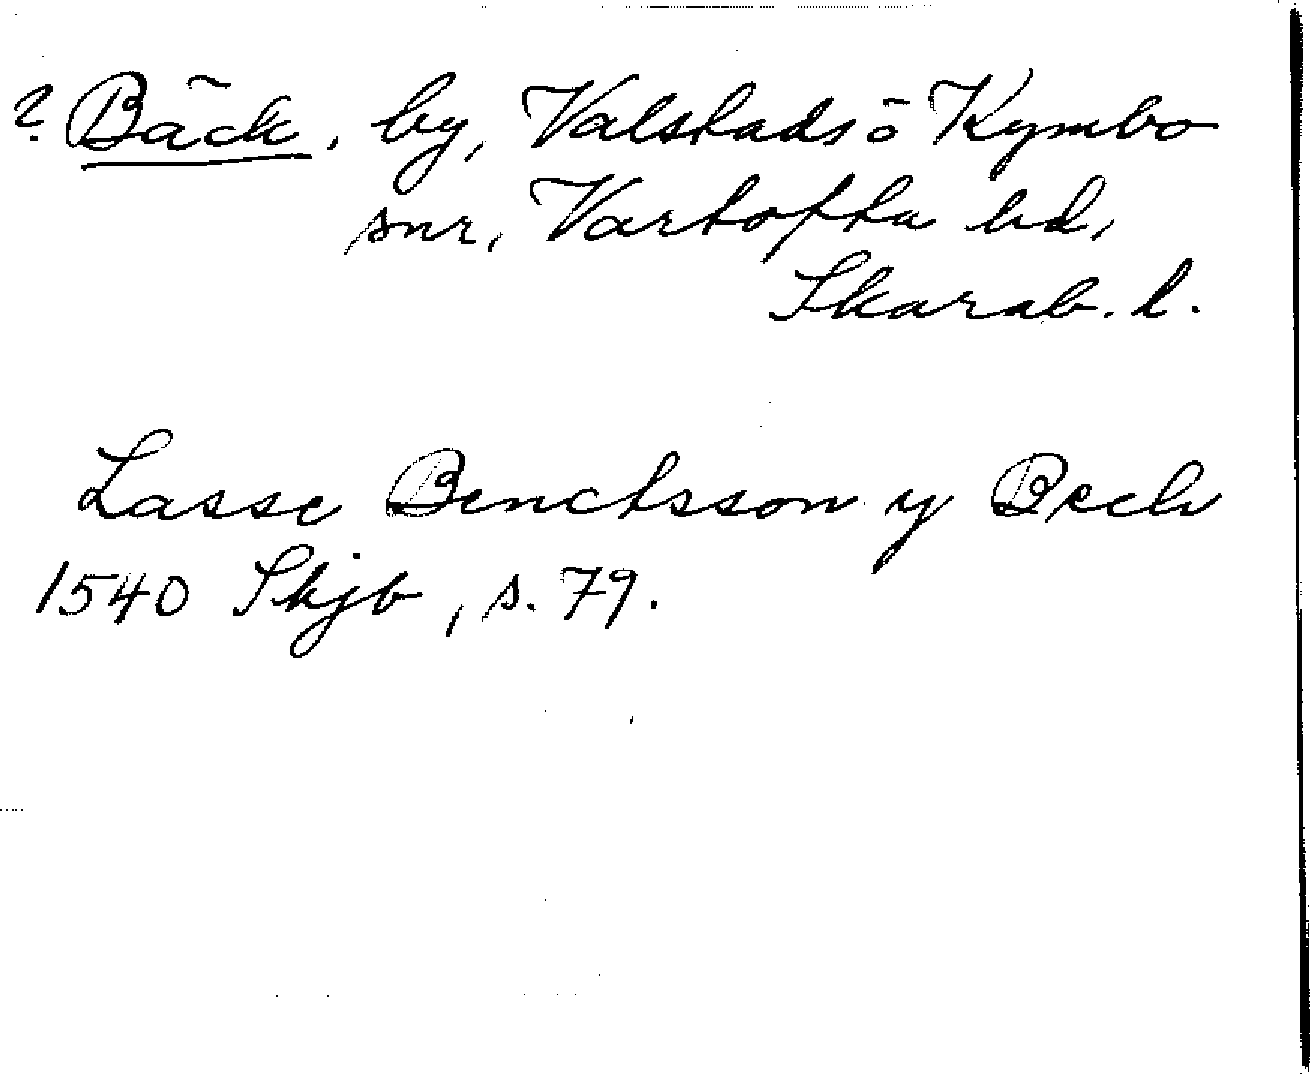 ? Bäck, by, Valstads o Kymbo
snr, Vartofta hd,
Skarab. l.
Lasse Benctsson y Beck
1540 Skjb, s. 79.